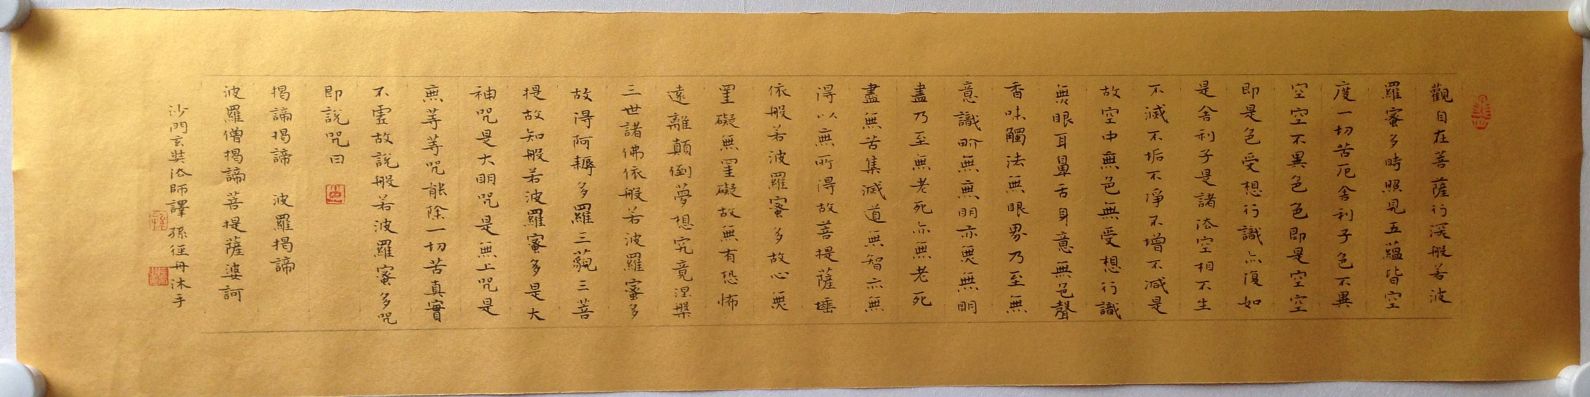 觀自在菩薩行深般若波
羅蜜多時照見五蘊皆空
度一切苦厄舍利子色不異
空空不異色色即是空空
即是色受想行識亦復如
是舍利子是諸法空相不生
不滅不垢不淨不增不減是
故空中無色無受想行識
無眼耳鼻舌身意無色聲
香味觸法無眼界乃至無
意識界無無明亦無無明
盡乃至無老死亦無老死
盡無苦集滅道無智亦無
得以無所得故菩提薩埵
依般若波羅蜜多故心無
罣礙無罣礙故無有恐怖
遠離顛倒夢想究竟涅槃
三世諸佛依般若波羅蜜多
故得阿耨多羅三藐三菩
提故知般若波羅蜜多是大
神咒是大明咒是無上咒是
無等等咒能除一切苦真實
不虛故說般若波羅蜜多咒
即說咒曰
揭諦揭諦 波羅揭諦
波羅僧揭諦菩提薩婆訶
沙門玄奘法師譯 孫徑丹沐手